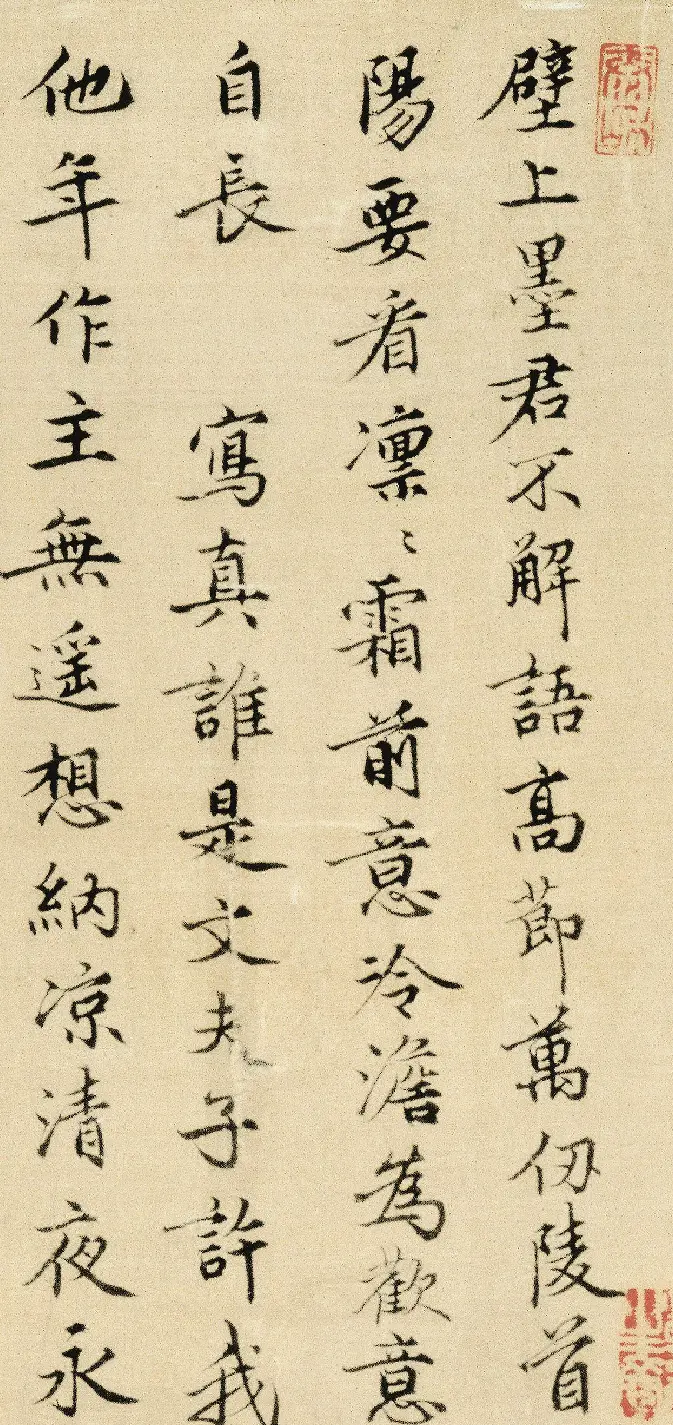 壁上墨君不解語高節萬仞陵首
陽要看凛〻霜前意冷澹為歡意
自長 寫真誰是文夫子許我
他年作主無遥想納凉清夜永